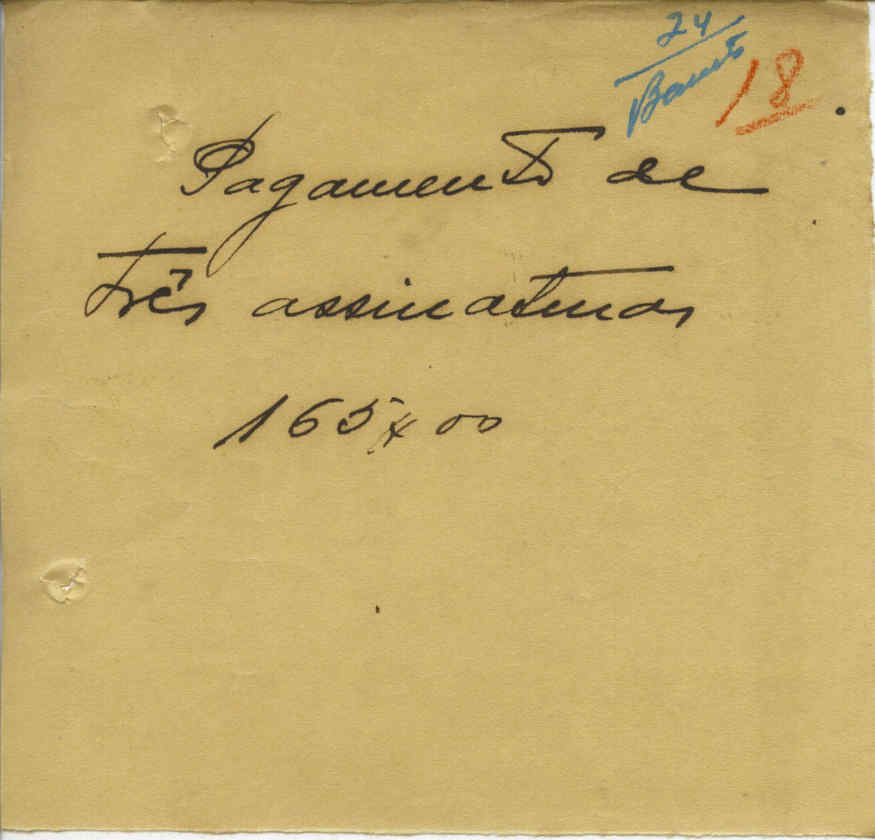 24
18
Pagamento de
três assinaturas
165$00